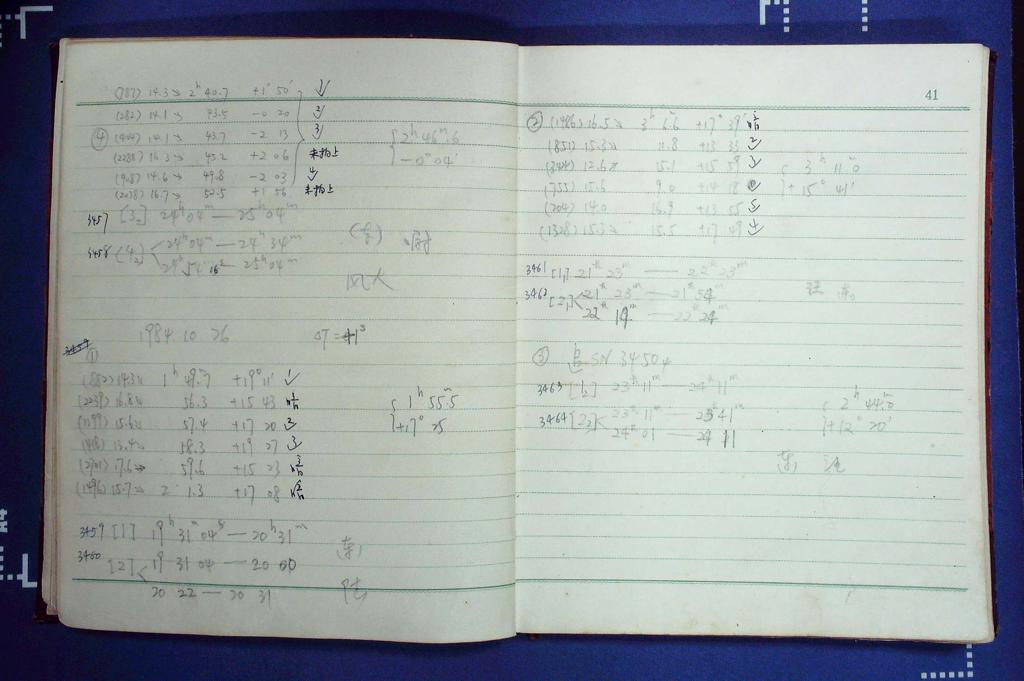 (787) 14.3 2ʰ 40.7 +1° 50′
(282) 14.1 43.5 -0 20
④ (404) 14.1 43.7 -2 13
(2288) 16.3 45.2 +2 06 未拍上
(918) 14.6 49.8 -2 03
(2078) 16.7 52.5 +1 56 未拍上
{ 2ʰ 46ᵐ.6
-0° 04′
3457 [32] 24ʰ04ᵐ — 25ʰ04ᵐ
3458 (42) < 24ʰ04ᵐ — 24ʰ34ᵐ
24ʰ54ᵐ — 25ʰ04ᵐ
风大
1984.10.26 ΔT=+1ˢ
①
(1882) 14.3 1ʰ 49ᵐ.7 +19° 11′
(2239) 16.8 56.3 +15 43 暗
(1199) 15.6 57.4 +17 20
(408) 13.4 58.3 +19 27
(2901) 17.6 59.6 +15 23 暗
(1496) 15.7 2 1.3 +17 08 暗
{ 1ʰ 55ᵐ.5
+17° 25
3459 [1] 19ʰ 31ᵐ 04ˢ — 20ʰ 31ᵐ
3460 [2] < 19 31 04 — 20 00
20 22 — 20 31
陆
41
② (1486) 16.5 3ʰ 6ᵐ.6 +17° 39′ 暗
(851) 15.3 11.8 +13 33
(3444) 12.6 15.1 +15 59
(755) 15.6 9.0 +14 18
(204) 14.0 16.9 +13 55
(1328) 15.3 15.5 +17 49
{ 3ʰ 11ᵐ.0
+15° 41′
3461 [1] 21ʰ 23ᵐ — 22ʰ 23ᵐ
3462 [2] < 21ʰ 23ᵐ — 21ʰ 54ᵐ
22ʰ 14ᵐ — 22ʰ 24ᵐ
③ 追 SN 34504
3463 [12] 23ʰ 11ᵐ — 24ʰ 11ᵐ
3464 [22] < 23ʰ 11ᵐ — 23ʰ 41ᵐ
24ʰ 01 — 24 11
{ 2ʰ 44ᵐ.0
+12° 20′